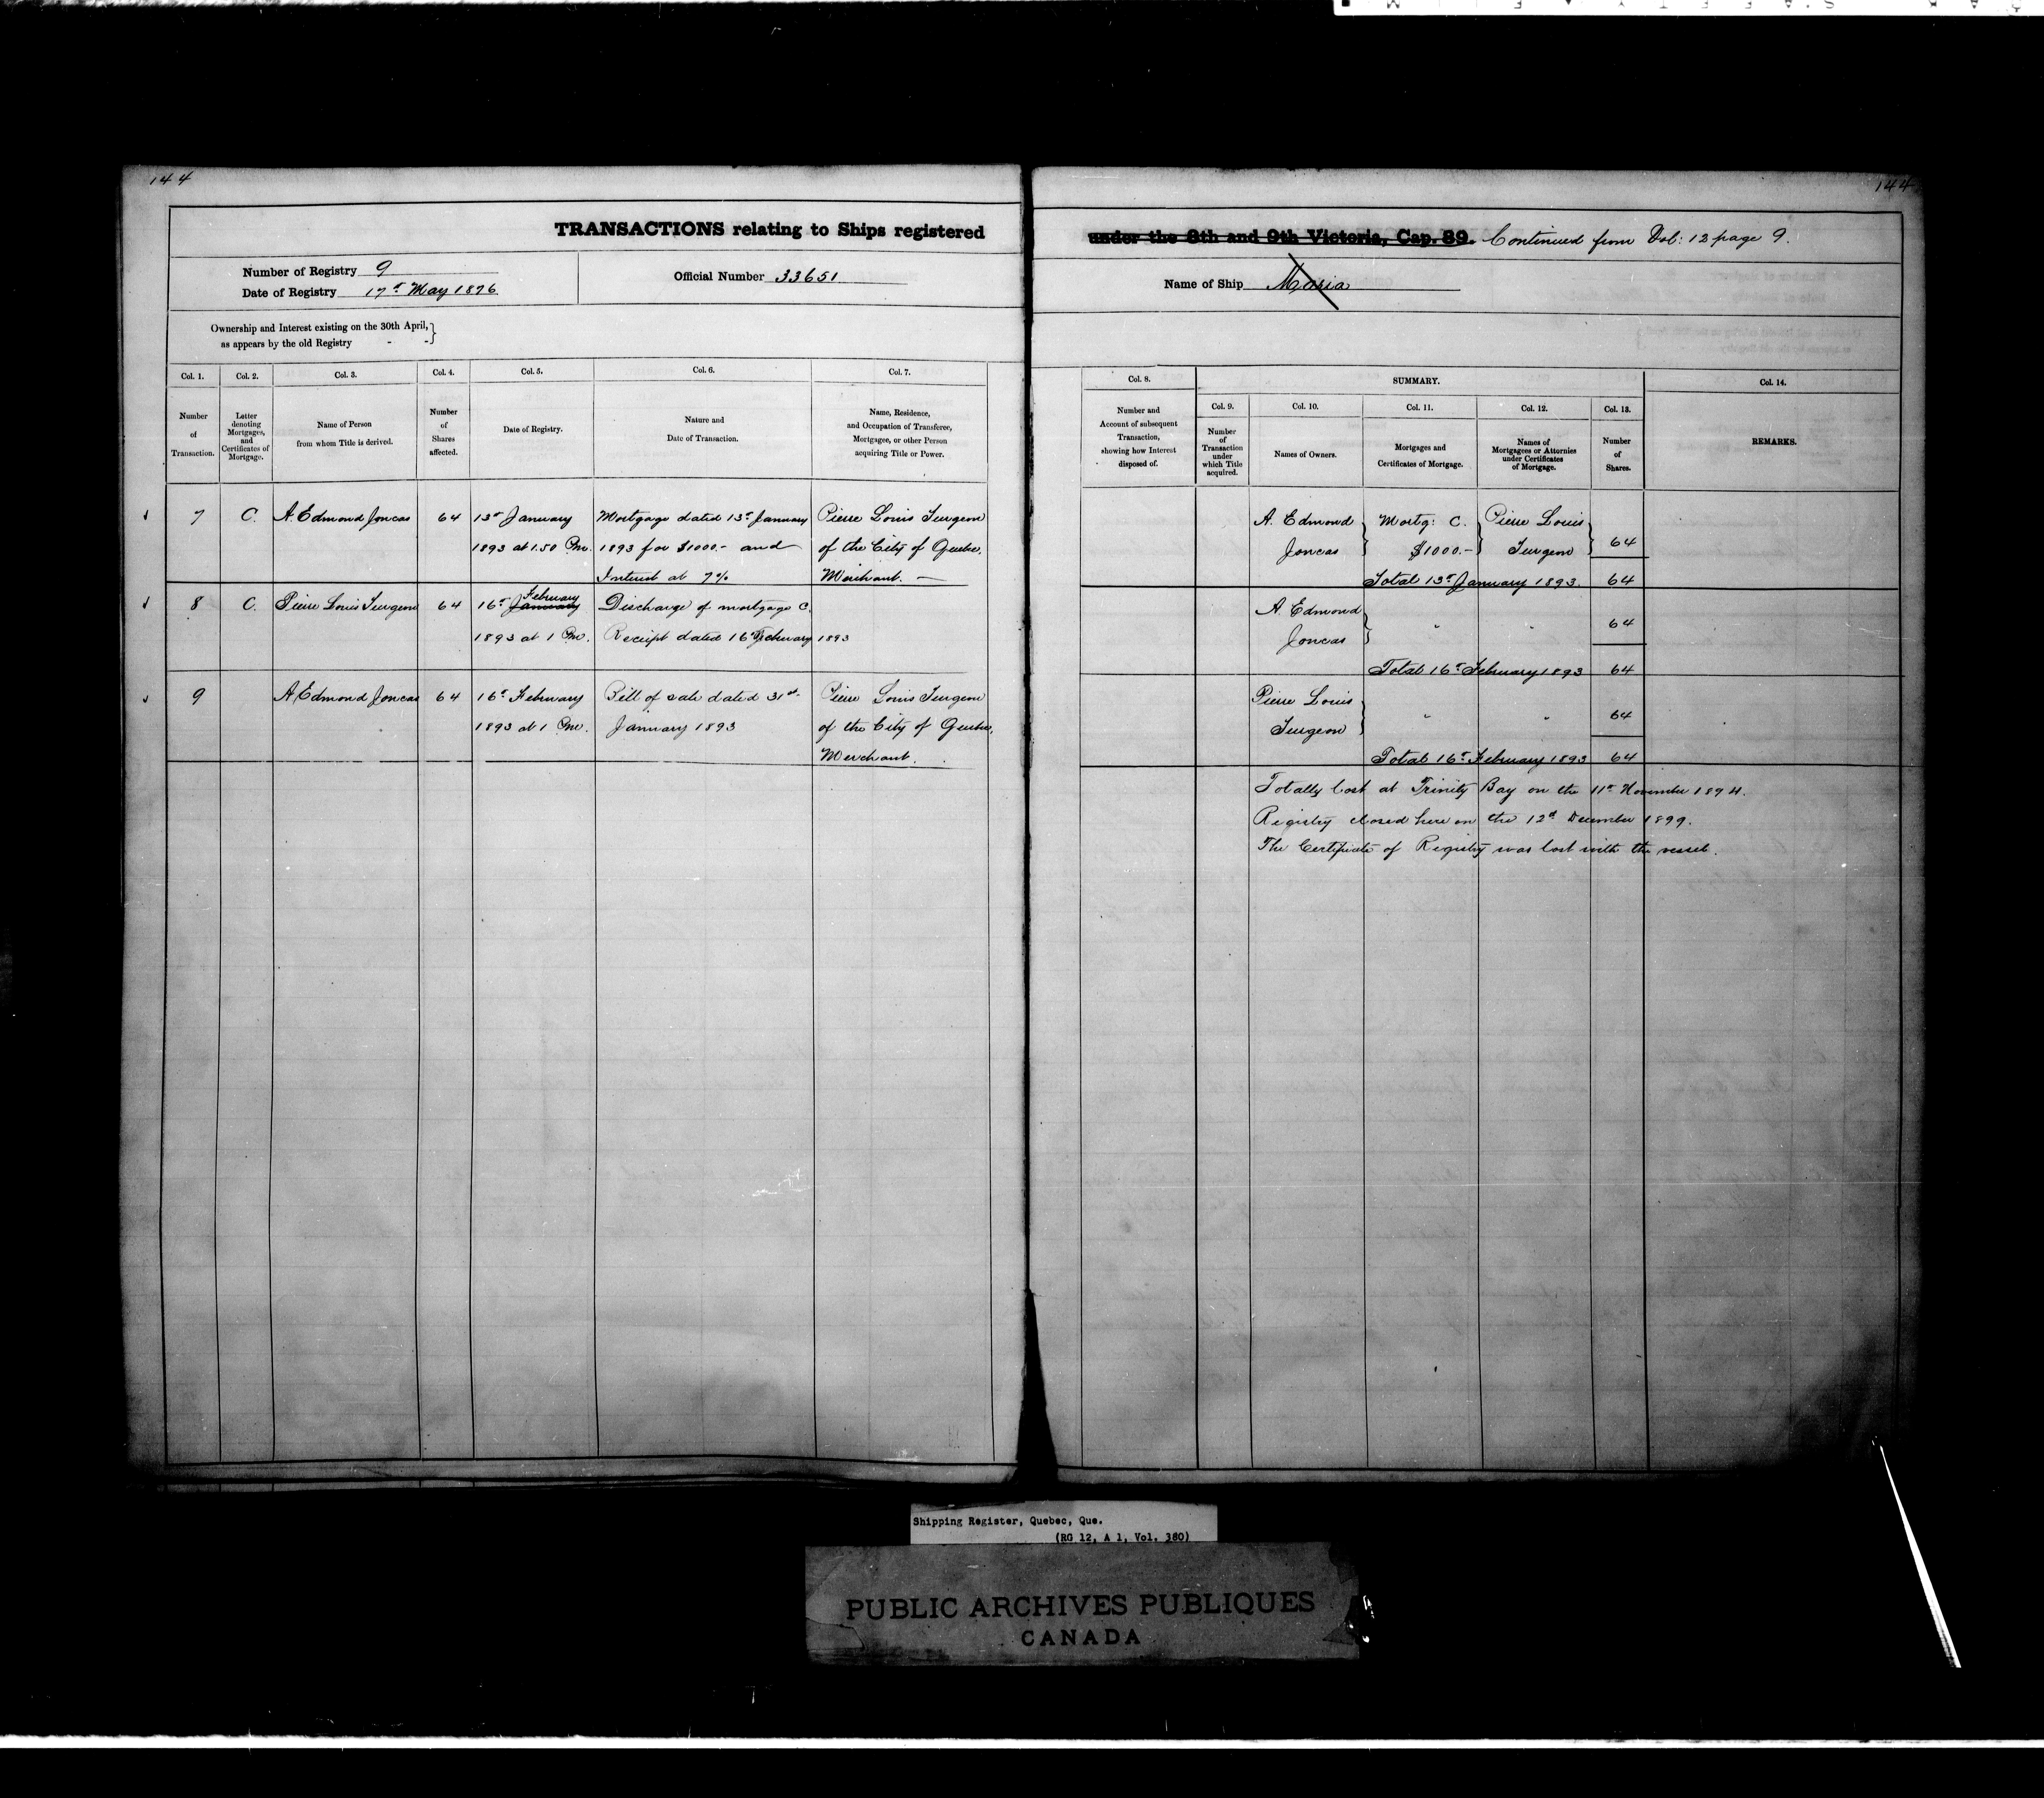 144
144
TRANSACTIONS relating to Ships registered under the 8th and 9th Victoria, Cap. 89. Continued from Vol: 12 page 9.
Number of Registry 9
Date of Registry 17th May 1876
Official Number 33651
Name of Ship Maria
Ownership and Interest existing on the 30th April,
as appears by the old Registry - -
Col. 1.
Number
of
Transaction.
Col. 2.
Letter
denoting
Mortgages,
and
Certificates of
Mortgage.
Col. 3.
Name of Person
from whom Title is derived.
Col. 4.
Number
of
Shares
affected.
Col. 5.
Date of Registry.
Col. 6.
Nature and
Date of Transaction.
Col. 7.
Name, Residence,
and Occupation of Transferee,
Mortgagee, or other Person
acquiring Title or Power.
Col. 8.
Number and
Account of subsequent
Transaction,
showing how Interest
disposed of.
SUMMARY.
Col. 9.
Number
of
Transaction
under
which Title
acquired.
Col. 10.
Names of Owners.
Col. 11.
Mortgages and
Certificates of Mortgage.
Col. 12.
Names of
Mortgagees or Attornies
under Certificates
of Mortgage.
Col. 13.
Number
of
Shares.
Col. 14.
REMARKS.
7 C. A. Edmond Joncas 64
13th January
1893 at 1.50 Pm.
Mortgage dated 13th January
1893 for $1000.- and
Interest at 7%
Pierre Louis Turgeon
of the City of Quebec,
Merchant. —
A. Edmond
Joncas
Mortg: C.
$1000.-
Pierre Louis
Turgeon
64
Total 13th January 1893. 64
8 C. Pierre Louis Turgeon 64
February
16th January
1893 at 1 Pm.
Discharge of mortgage C.
Receipt dated 16th February 1893
A. Edmond
Joncas
" "
64
Total 16th February 1893 64
9 A. Edmond Joncas 64
16th February
1893 at 1 Pm.
Bill of sale dated 31st
January 1893
Pierre Louis Turgeon
of the City of Quebec,
Merchant.
Pierre Louis
Turgeon
" "
64
Total 16th February 1893 64
Totally lost at Trinity Bay on the 11th November 1894.
Registry closed here on the 12th December 1899.
The Certificate of Registry was lost with the vessel.
Shipping Register, Quebec, Que.
(RG 12, A 1, Vol. 380)
PUBLIC ARCHIVES PUBLIQUES
CANADA